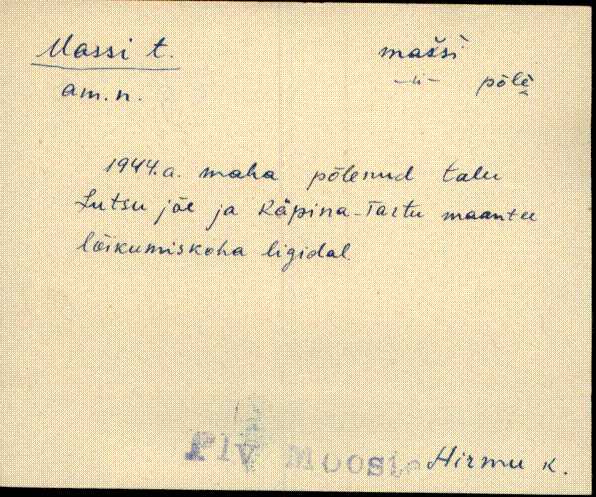 Massi t.
mašśi
am. n.
—"— põlè
1944. a. maha põlenud talu
Lutsu jõe ja Käpina-Tartu maantee
lõikumiskoha ligidal.
Plv Mooste
Hirmu k.